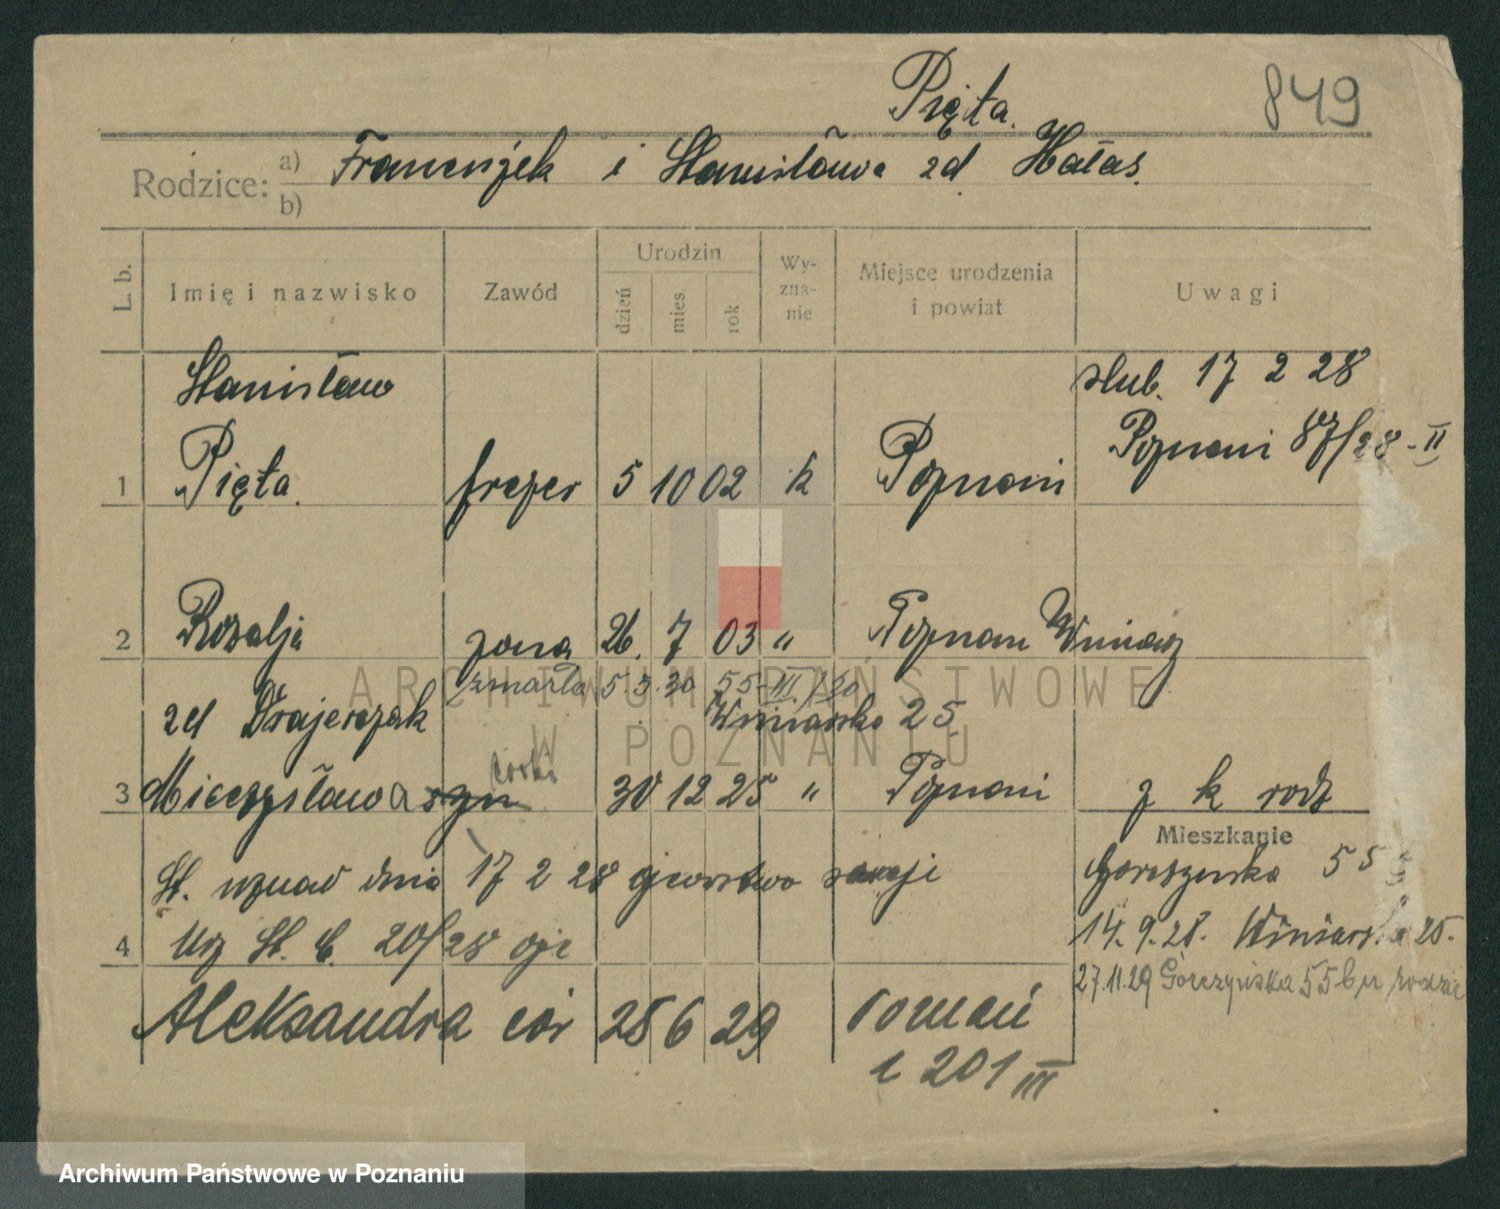 Pięta.
849
Rodzice: a) b)
Franciszek i Stanisława zd Hałas.
L. b.
Imię i nazwisko
Zawód
Urodzin
dzień
mies
rok
Wy-
zna-
nie
Miejsce urodzenia
i powiat
Uwagi
Stanisław
ślub. 17 2 28
Poznań 87/28-II
1 Pięta. frezer 5 10 02 k Poznań
2 Rozalja żona 26. 7 03 " Poznań Winiary
zmarła 5.3.30 55-III/30
zd Drajerczak Winiarska 25
córka
3 Mieczysława syn 30 12 25 " Poznań z k rodz
Mieszkanie
St. uznał dnia 17 2 28 ojcostwo swoje
Gorczyńska 55
4 Urz St. C. 20/28 ojc
14.9.28. Winiarska 25.
27.11.29 Górczyńska 55b u rodzic
Aleksandra cór 28 6 29 Poznań
L 201 III
ARCHIWUM PAŃSTWOWE
W POZNANIU
Archiwum Państwowe w Poznaniu